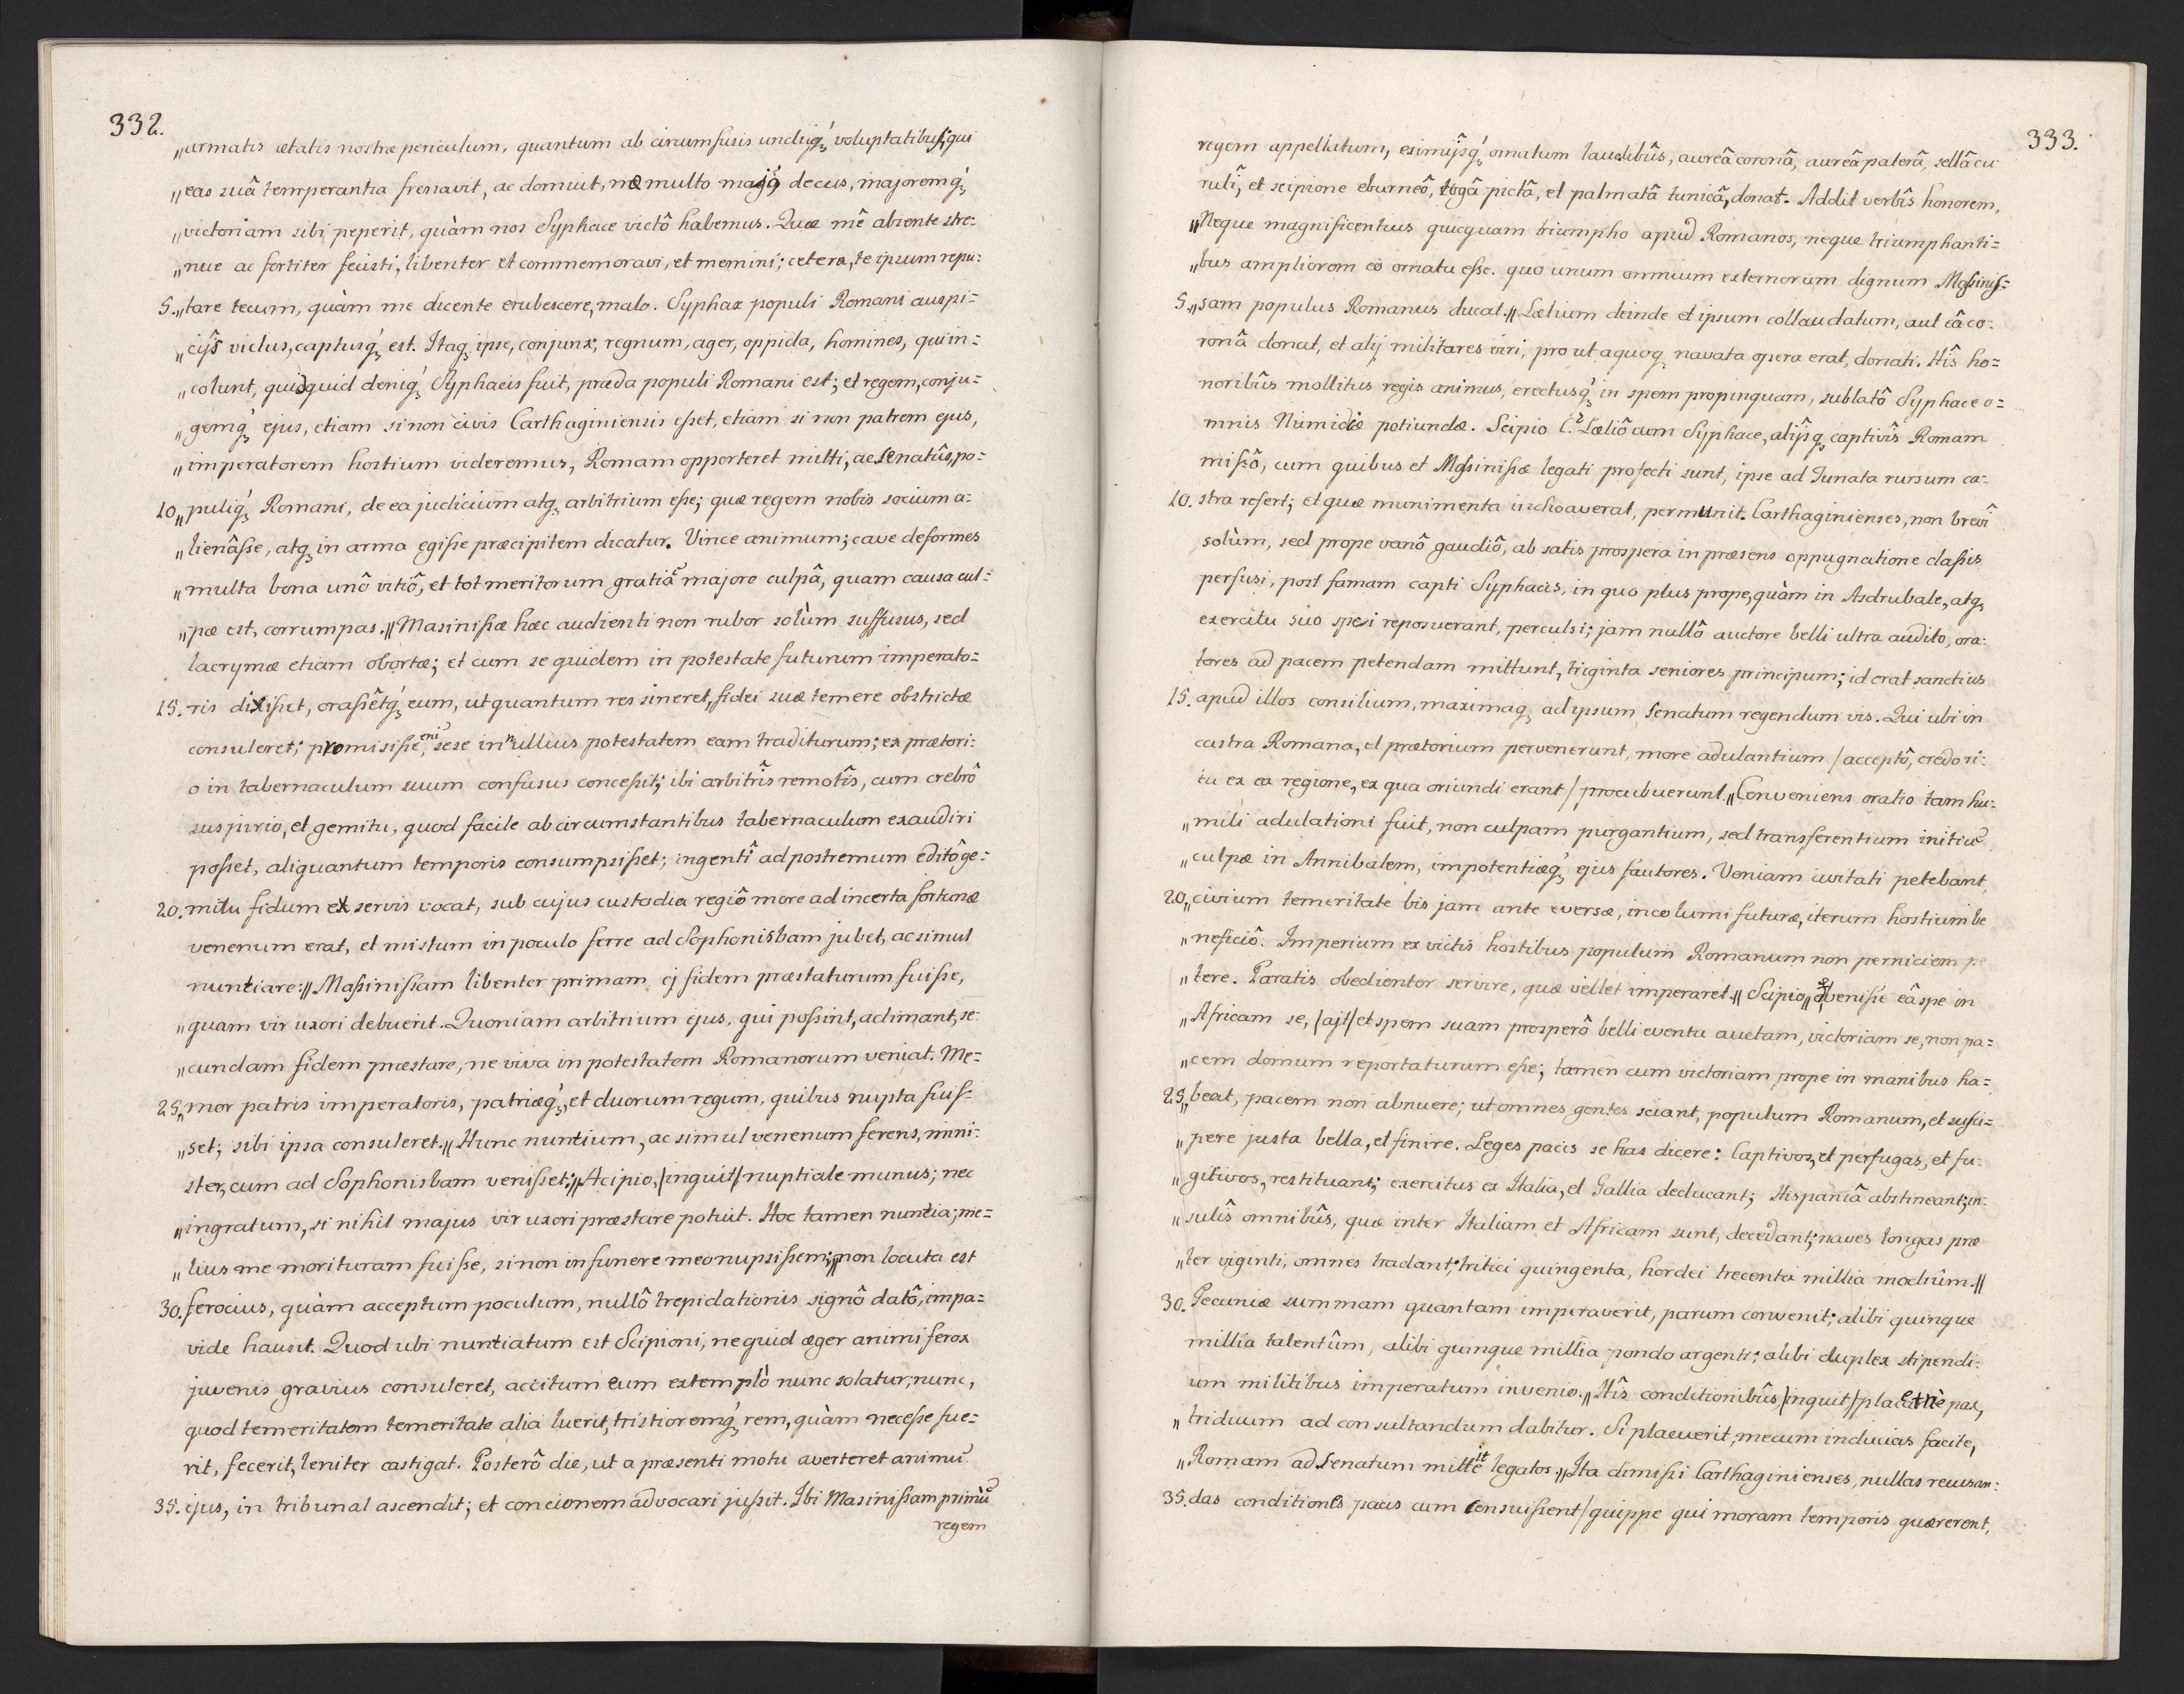 332.
„armatis ætatis nostræ periculum, quantum ab circumfusis undiq́ꝫ voluptatibus; qui
„eas suâ temperantia frenavit, ac domuit, næ multo majꝰ decus, majoremq́ꝫ
„victoriam sibi peperit, quàm nos Syphace victô habemus. Quæ mê absente stre=
„nue ac fortiter fecisti, libenter et commemoravi, et memini; cetera, te ipsum repu=
5.„tare tecum, quàm me dicente erubescere, malo. Syphax populi Romani auspi=
„cijs victus, captusq́ꝫ est. Itaqꝫ ipse, conjunx, regnum, ager, oppida, homines, qui in=
„colunt, quidquid deniq́ꝫ Syphacis fuit, præda populi Romani est; et regem, conju=
„gemq́ꝫ ejus, etiam si non civis Carthaginiensis eſset, etiam si non patrem ejus,
„imperatorem hostium videremus, Romam opporteret mitti, ac Senatûs, po=
10„puliq́ꝫ Romani, de ea judicium atqꝫ arbitrium eſse; quæ regem nobis socium a=
„lienâſse, atqꝫ in arma egiſse præcipitem dicatur. Vince animum; cave deformes
„multa bona unô vitiô, et tot meritorum gratiã majore culpâ, quam causa cul=
„pæ est, corrumpas.„ Masiniſsæ hæc audienti non rubor solùm suffusus, sed
lacrymæ etiam obortæ; et cum se quidem in potestate futurum imperato=
15. ris dixiſset, oraſsêtq́ꝫ eum, ut quantum res sineret, fidei suæ temere obstrictæ
consuleret; promisiſse eni, sese in nullius potestatem eam traditurum; ex prætori=
o in tabernaculum suum confusus conceſsit; ibi arbitrîs remotîs, cum crebrô
suspirio, et gemitu, quod facile ab circumstantibus tabernaculum exaudiri
poſset, aliquantum temporis consumpsiſset; ingentî ad postremum editô ge=
20. mitu fidum ex servis vocat, sub cujus custodia regiô more ad incerta fortunæ
venenum erat, et mistum in poculo ferre ad Sophonisbam jubet, ac simul
nuntiare:„ Maſsiniſsam libenter primam ej fidem præstaturum fuiſse,
„quam vir uxori debuerit. Quoniam arbitrium ejus, qui poſsint, adimant, se=
„cundam fidem præstare, ne viva in potestatem Romanorum veniat. Me=
25„mor patris imperatoris, patriæq́ꝫ, et duorum regum, quibus nupta fuiſ=
„set; sibi ipsa consuleret.„ Hunc nuntium, ac simul venenum ferens, mini=
ster, cum ad Sophonisbam veniſset;„ Acipio, /inquit/ nuptiale munus; nec
„ingratum, si nihil majus vir uxori præstare potuit. Hoc tamen nuntia; me=
„lius me morituram fuiſse, si non in funere meo nupsiſsem;„ non locuta est
30. ferocius, quàm acceptum poculum, nullô trepidationis signô datô, impa=
vide hausit. Quod ubi nuntiatum est Scipioni, ne quid æger animi ferox
juvenis gravius consuleret, accitum eum extemplò nunc solatur, nunc,
quod temeritatem temeritate alia luerit, tristioremq́ꝫ rem, quàm neceſse fue=
rit, fecerit, leniter castigat. Posterô die, ut a præsenti motu averteret animũ
35. ejus, in tribunal ascendit; et concionem advocari juſsit. Ibi Masiniſsam primũ
regem
333.
regem appellatum, eximijsq́ꝫ ornatum laudibûs, aureâ coronâ, aureâ paterâ, sellâ cu
rulî, et scipione eburneô, togâ pictâ, et palmatâ tunicâ, donat. Addit verbîs honorem,
„Neque magnificentius quicquam triumpho apud Romanos, neque triumphanti=
„bus ampliorem eô ornatu eſse. quo unum omnium externorum dignum Maſsiniſ=
5.„sam populus Romanus ducat.„ Lælium deinde et ipsum collaudatum, aut eâ co=
ronâ donat, et alij militares viri, pro ut a quoqꝫ navata opera erat, donati. Hîs ho=
noribûs mollitus regis animus, erectusq́ꝫ in spem propinquam, sublatô Syphace o=
mnis Numidiæ potiundæ. Scipio C. Læliô cum Syphace, alijsqꝫ captivîs Romam
miſsô, cum quibus et Maſsiniſsæ legati profecti sunt, ipse ad Tunata rursum ca=
10. stra refert; et quæ munimenta inchoaverat, permunit. Carthaginienses, non brevî
solùm, sed prope vanô gaudiô, ab satis prospera in præsens oppugnatione claſsis
perfusi, post famam capti Syphacis, in quo plus prope, quàm in Asdrubale, atqꝫ
exercitu suo spei reposuerant, perculsi; jam nullô auctore belli ultra audito, ora=
tores ad pacem petendam mittunt, triginta seniores principum; id erat sanctius
15. apud illos consilium, maximaqꝫ ad ipsum Senatum regendum vis. Qui ubi in
castra Romana, et prætorium pervenerunt, more adulantium /acceptô, credo ri=
tu ex ea regione, ex qua oriundi erant/ procubuerunt.„ Conveniens oratio tam hu=
„mili adulationi fuit, non culpam purgantium, sed transferentium initiũ
„culpæ in Annibalem, impotentiæq́ꝫ ejus fautores. Veniam civitati petebant,
20„civium temeritate bis jam ante eversæ, incolumi futuræ, iterum hostium be
„neficiô. Imperium ex victis hostibus populum Romanum non perniciem pe
„tere. Paratis obedienter servire, quæ vellet imperaret.„ Scipio„ veniſse eâ spe in
„Africam se, /ajt/ et spem suam prosperô belli eventu auctam, victoriam se, non pa=
„cem domum reportaturum eſse; tamen cum victoriam prope in manibus ha=
25„beat, pacem non abnuere; ut omnes gentes sciant, populum Romanum, et susci=
„pere justa bella, et finire. Leges pacis se has dicere: Captivos, et perfugas, et fu=
„gitivos, restituant; exercitus ex Italia, et Gallia deducant; Hispaniâ abstineant; in=
„sulîs omnibûs, quæ inter Italiam et Africam sunt, decedant; naves longas præ
„ter viginti, omnes tradant; tritici quingenta, hordei trecenta millia modiûm.„
30. Pecuniæ summam quantam imperaverit, parum convenit; alibi quinque
millia talentûm, alibi quinque millia pondo argenti; alibi duplex stipendi=
um militibus imperatum invenio.„ Hîs conditionibûs /inquit/ placetne pax,
„triduum ad consultandum dabitur. Si placuerit, mecum inducias facite,
„Romam ad Senatum mittite legatos.„ Ita dimiſsi Carthaginienses, nullas recusan=
35. das conditiones pacis cum censuiſsent /quippe qui moram temporis quærerent,